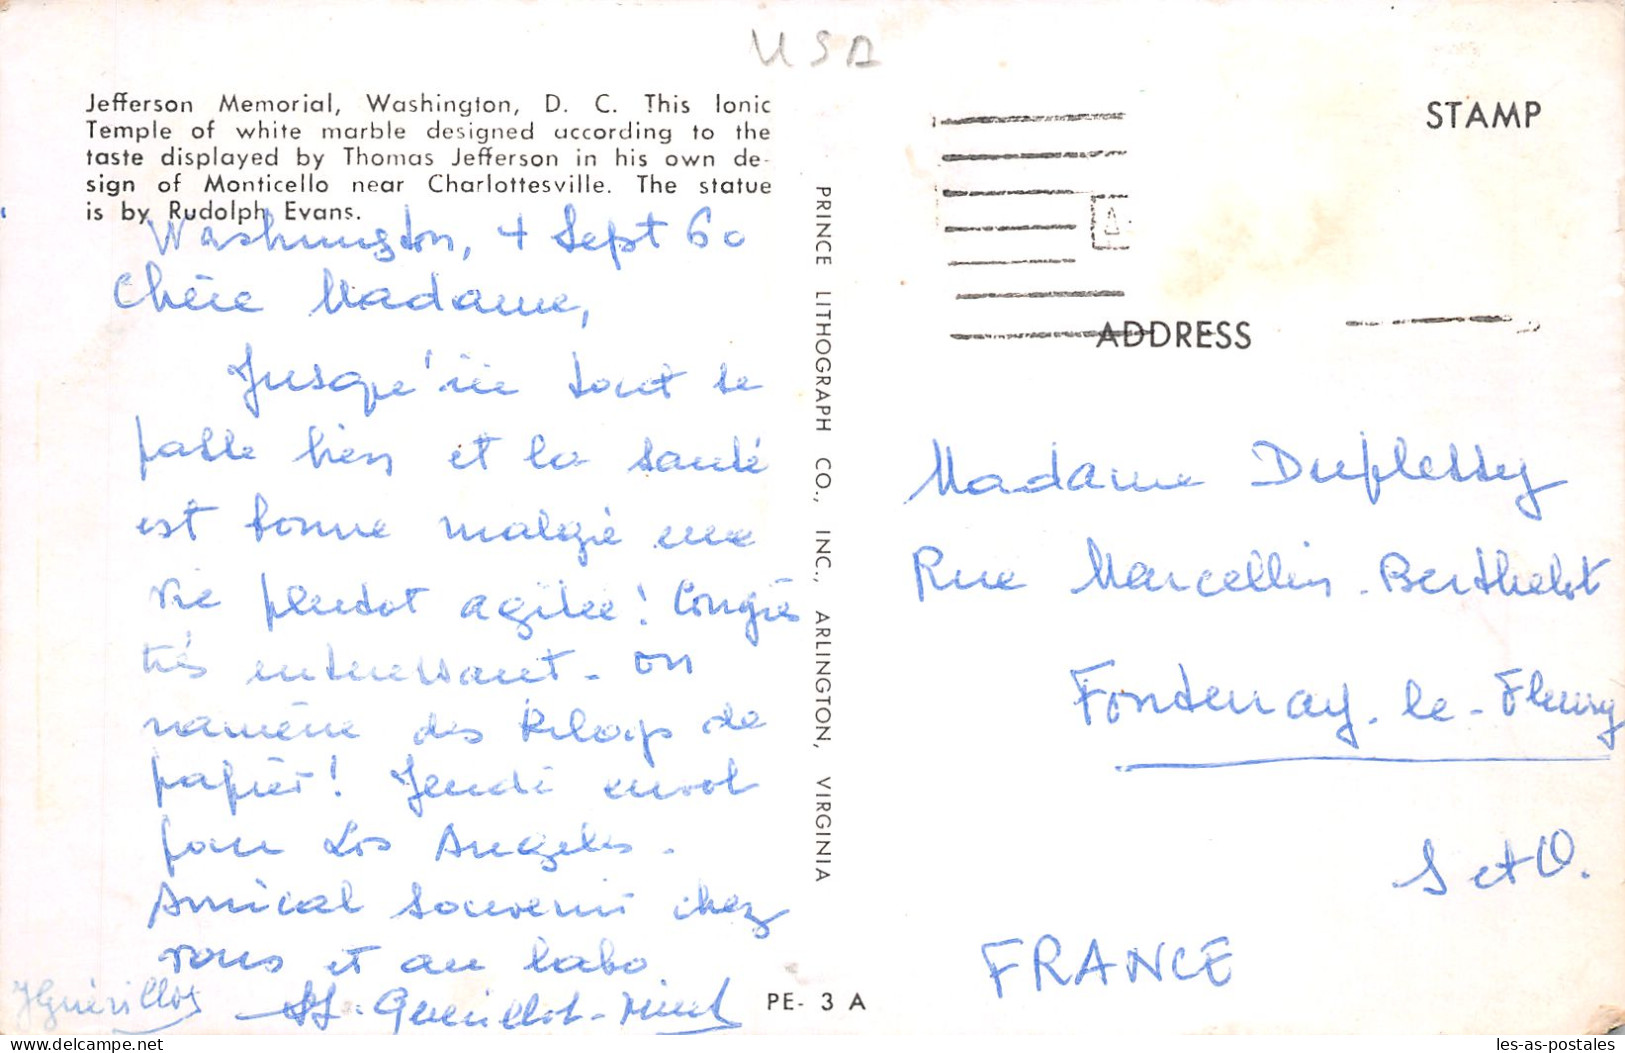 USA
Jefferson Memorial, Washington, D. C. This Ionic
Temple of white marble designed according to the
taste displayed by Thomas Jefferson in his own de-
sign of Monticello near Charlottesville. The statue
is by Rudolph Evans.
Washington, 4 Sept 60
Chère Madame,
Jusqu'ici tout se
passe bien et la santé
est bonne malgré une
vie plutot agitée! Congrès
très intéressant - on
ramène des kilogs de
papier! Jeudi envol
pour Los Angeles.
Amical souvenir chez
vous et au labo
PE- 3 A
PRINCE LITHOGRAPH CO., INC., ARLINGTON, VIRGINIA
STAMP
ADDRESS
Madame Duplessy
Rue Marcellin-Berthelot
Fontenay-le-Fleury
S et O.
FRANCE
delcampe.net
les-as-postales